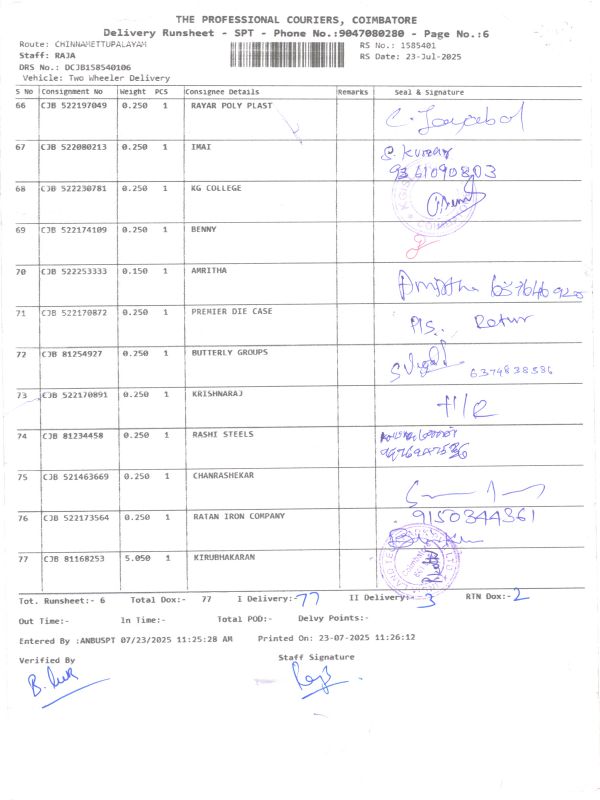 THE PROFESSIONAL COURIERS, COIMBATORE
Delivery Runsheet - SPT - Phone No.:9047080280 - Page No.:6
Route: CHINNAMETTUPALAYAM RS No.: 1585401
Staff: RAJA RS Date: 23-Jul-2025
DRS No.: DCJB158540106
Vehicle: Two Wheeler Delivery
S No Consignment No Weight PCS Consignee Details Remarks Seal & Signature
66 CJB 522197049 0.250 1 RAYAR POLY PLAST
67 CJB 522080213 0.250 1 IMAI S. Kumar
9361090803
68 CJB 522230781 0.250 1 KG COLLEGE
69 CJB 522174109 0.250 1 BENNY
70 CJB 522253333 0.150 1 AMRITHA Amirtha
71 CJB 522170872 0.250 1 PREMIER DIE CASE Pls. Retur
72 CJB 81254927 0.250 1 BUTTERLY GROUPS 6374838536
73 CJB 522170891 0.250 1 KRISHNARAJ
74 CJB 81234458 0.250 1 RASHI STEELS
75 CJB 521463669 0.250 1 CHANRASHEKAR
76 CJB 522173564 0.250 1 RATAN IRON COMPANY 9150344361
77 CJB 81168253 5.050 1 KIRUBHAKARAN
Tot. Runsheet:- 6 Total Dox:- 77 I Delivery:- 77 II Delivery:- 3 RTN Dox:- 2
Out Time:- In Time:- Total POD:- Delvy Points:-
Entered By :ANBUSPT 07/23/2025 11:25:28 AM Printed On: 23-07-2025 11:26:12
Verified By Staff Signature